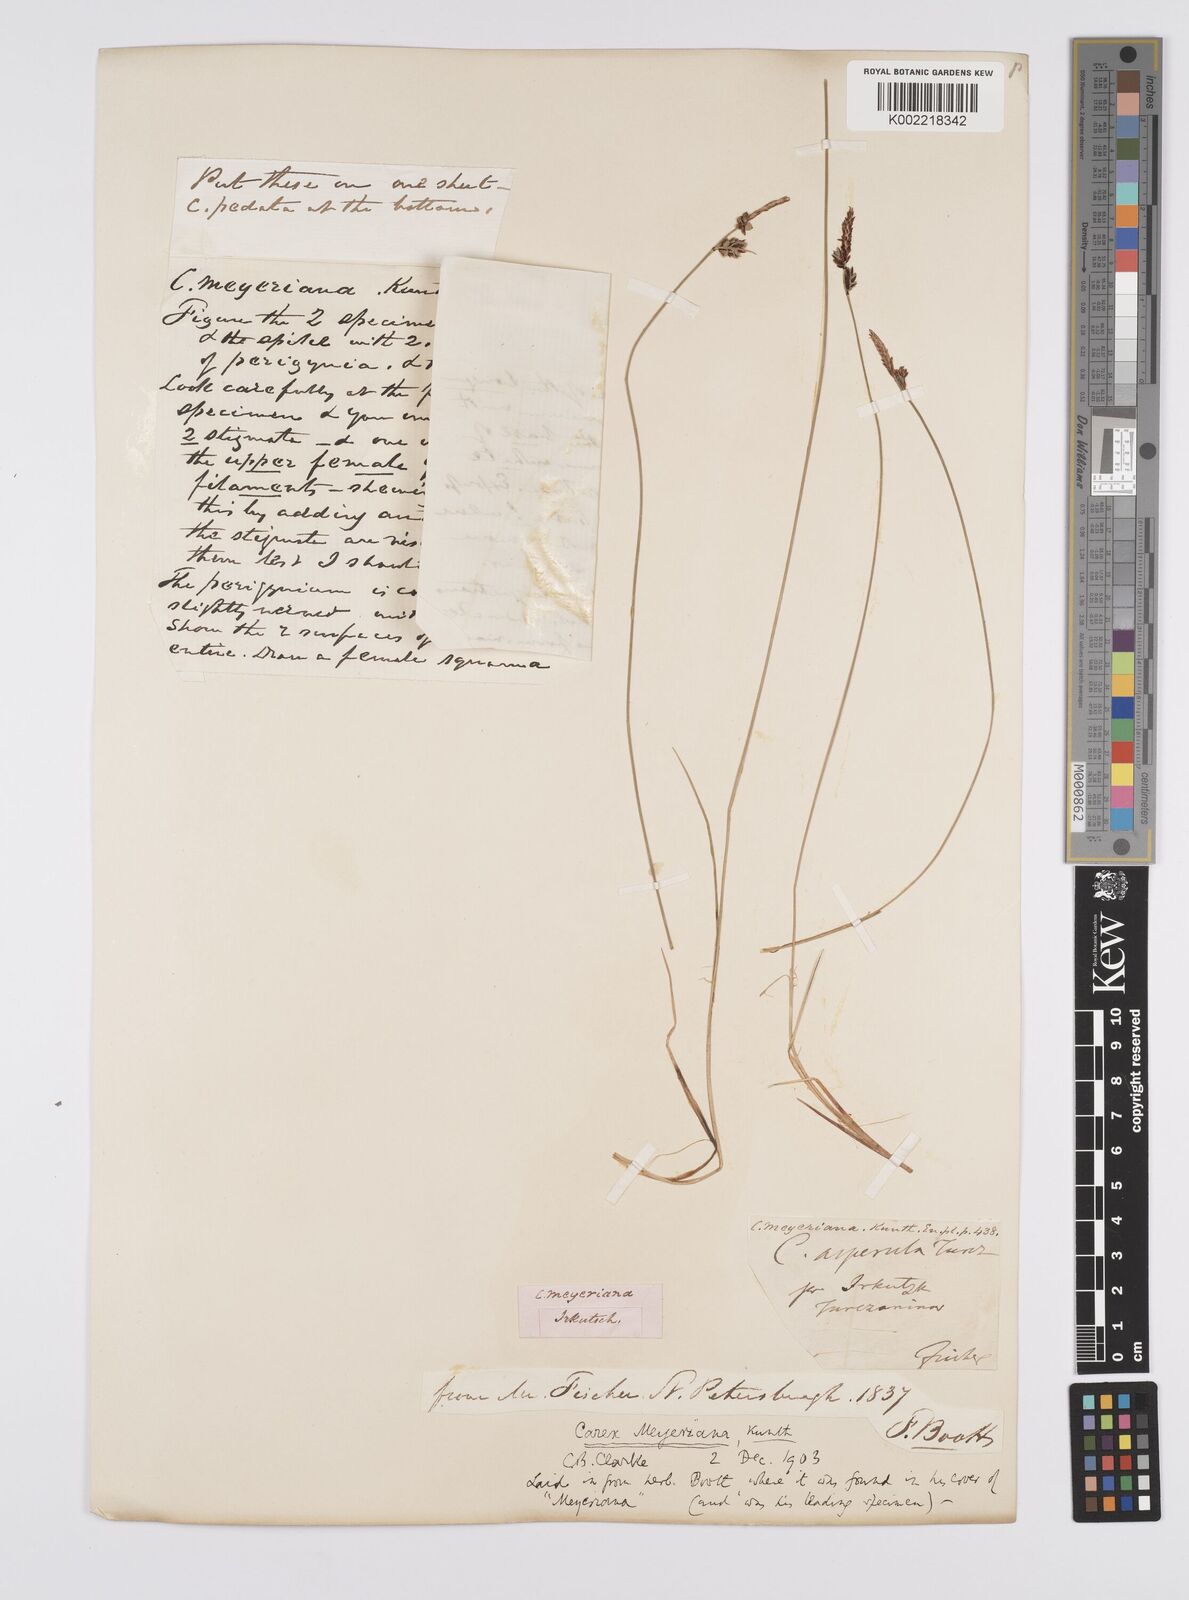 ROYAL BOTANIC GARDENS KEW
K002218342
Put these on one sheet -
C. pedata at the bottom.
C. meyeriana . Kun
Figure the 2 specime
& the spike with 2.
of perigynia . &
Look carefully at the
specimens & you
2 stigmata - & one
the upper female
filaments - shewi
this by adding an
the stigmata are vis
them lest I should
The perigynium is co
slightly nerved
Show the 2 surfaces of
entire. Draw a female squama
C. meyeriana . Kunth . En. pl. p. 438.
C. asperula Turcz
Irkutzk
Turczaninow
Fischer
C. meyeriana
Irkutsch.
from Mr. Fischer St. Petersburgh . 1837
F. Boott
Carex Meyeriana, Kunth
C.B. Clarke 2 Dec. 1903
Laid in from herb. Boott where it was found in his cover of
"Meyeriana" (and was his leading specimen) -
inches
centimeters
Density
Don Williams
M000862
Kew
Royal Botanic Gardens
copyright reserved
0 1 2 3 4 5 6 7 8 9 10
cm